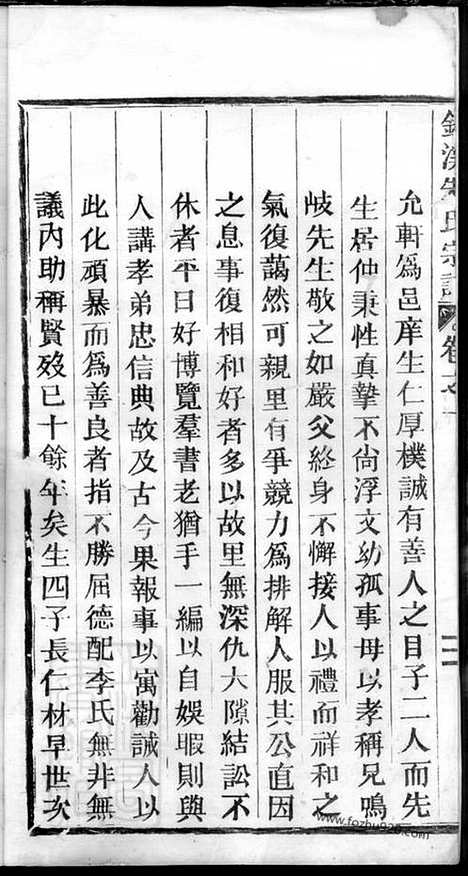 允軒爲邑庠生仁厚樸誠有善人之目子二人而先
生居仲秉性真摯不尙浮文幼孤事母以孝稱兄鳴
岐先生敬之如嚴父終身不懈接人以禮而祥和之
氣復藹然可親里有爭競力爲排解人服其公直因
之息事復相和好者多以故里無深仇大隙結訟不
休者平日好博覽羣書老猶手一編以自娛暇則與
人講孝弟忠信典故及古今果報事以寓勸誡人以
此化頑暴而爲善良者指不勝屈德配李氏無非無
議內助稱賢歿已十餘年矣生四子長仁材早世次
氏宗譜 卷之一
二
www.fozhu920.com